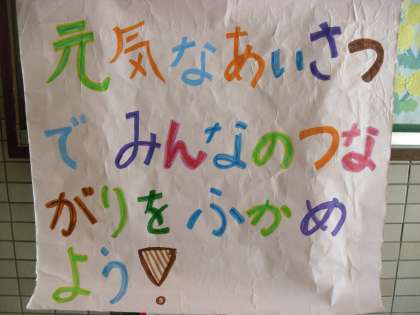 元気なあいさつ
でみんなのつな
がりをふかめ
よう!